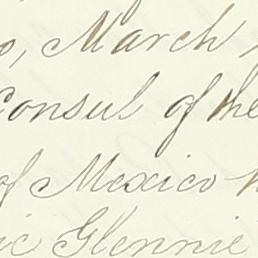 o, March
Consul of the
of Mexico
ic Glennie